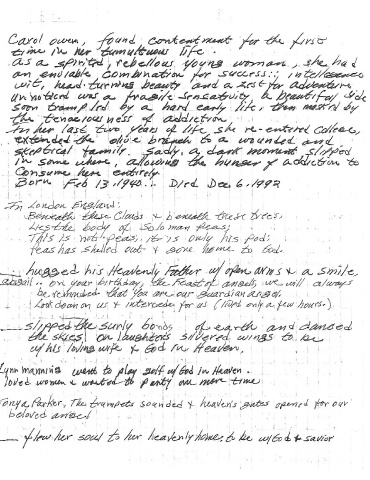 Carol owen, found contentment for the first
time in her tumultuous life.
as a spirited, rebellous young woman, she had
an enviable combination for success:; intellegence
wit, head-turning beauty and a zest for adventure
unnoticed was a fragile sensativity a beautiful
son trampled by a hard early life, then masked by
the tenaciousness of addiction.
In her last two years of life she re-entered College,
extended the olive branch to a wounded and
skeptical family. Sadly, a dark moment slipped
in some where, allowing the hunger of addiction to
Consume her entirely.
Born Feb 13.1940... Died Dec 6.1992
In London England:
Beneath these Clouds & beneath these trees,
Lies the body of Soloman peas;
This is not peas, it is only his pod;
peas has shelled out & gone home to God.
___ hugged his Heavenly Father w/open arms & a smile
abigail.. on your birthday, the feast of angels, we will always
be reminded that you are our guardian angel.
Look down on us & intercede for us (lived only a few hours.)
___ slipped the surly bonds of earth and danced
the skies on laughters silvered wings to be
w/his loving wife & God in Heaven.
Lynn manning went to play golf w/God in Heaven.
loved women & wanted to party one more time
Tonya Parker, The trumpets sounded & heaven's gates opened for our
beloved
___ flew her soul to her heavenly home to be w/God & savior